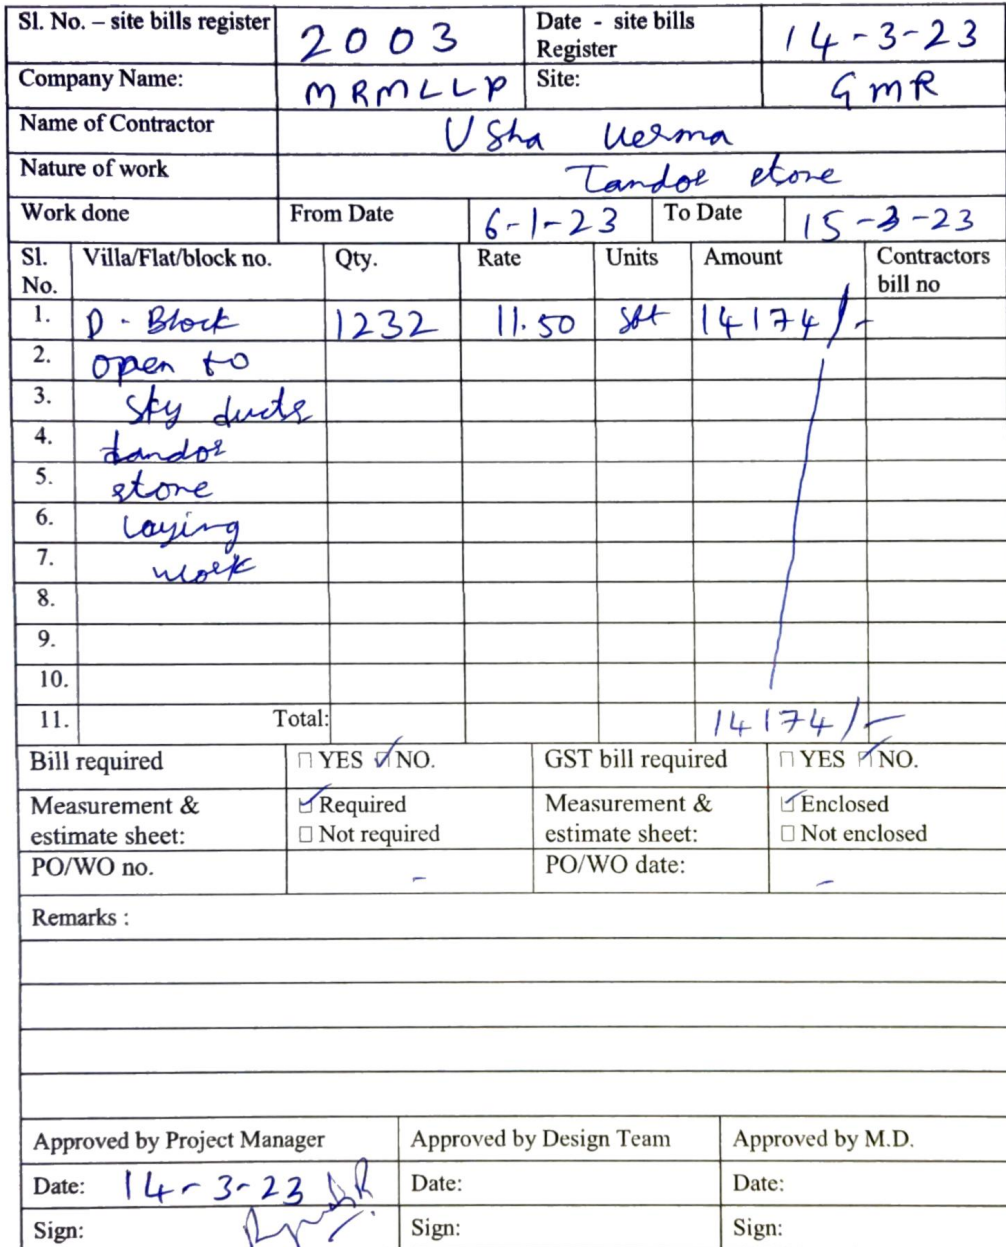 Sl. No. – site bills register 2003 Date - site bills Register 14-3-23
Company Name: MRMLLP Site: GMR
Name of Contractor Usha Verma
Nature of work Tandoe stone
Work done From Date 6-1-23 To Date 15-3-23
Sl. No. Villa/Flat/block no. Qty. Rate Units Amount Contractors bill no
1. D - Block 1232 11.50 sft 14174/-
2. open to
3. sky ducts
4. tandoe
5. stone
6. laying
7. work
8.
9.
10.
11. Total: 14174/-
Bill required □ YES ☑ NO. GST bill required □ YES ☑ NO.
Measurement & estimate sheet: ☑ Required Measurement & estimate sheet: ☑ Enclosed
□ Not required □ Not enclosed
PO/WO no. - PO/WO date: -
Remarks :
Approved by Project Manager Approved by Design Team Approved by M.D.
Date: 14-3-23 Date: Date:
Sign: Sign: Sign: